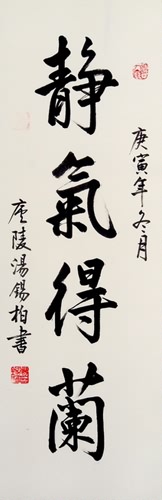 静氣得蘭
庚寅年冬月
廬陵湯錫柏書